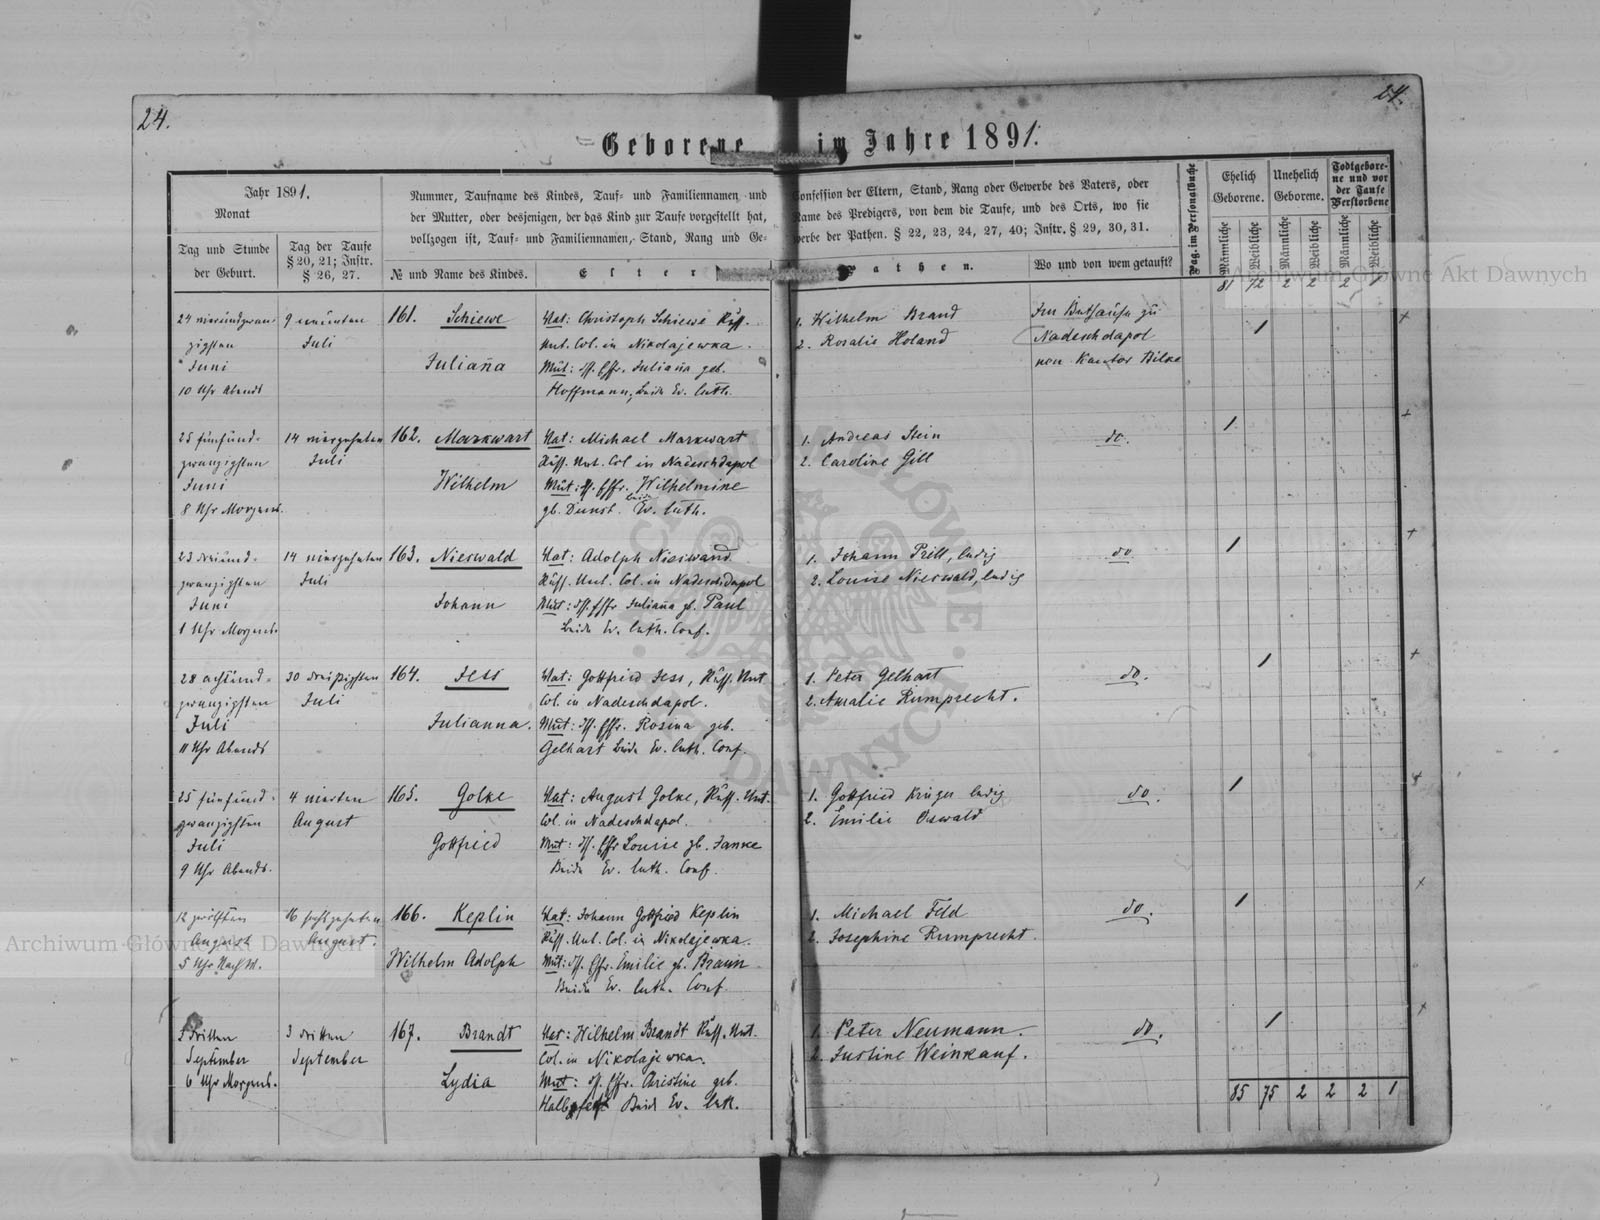 24.
24.
Geborene im Jahre 1891.
Jahr 1891.
Monat
Tag und Stunde
der Geburt.
Tag der Taufe
§ 20, 21; Instr.
§ 26, 27.
Nummer, Taufname des Kindes, Tauf- und Familiennamen und
der Mutter, oder desjenigen, der das Kind zur Taufe vorgestellt hat,
vollzogen ist, Tauf- und Familiennamen, Stand, Rang und Ge-
№ und Name des Kindes.
Elter
Confession der Eltern, Stand, Rang oder Gewerbe des Vaters, oder
Name des Predigers, von dem die Taufe, und des Orts, wo sie
werbe der Pathen. § 22, 23, 24, 27, 40; Instr. § 29, 30, 31.
Pathen.
Wo und von wem getauft?
Pag. im Personalbuche
Ehelich
Geborene.
Unehelich
Geborene.
Todtgebore-
ne und vor
der Taufe
Verstorbene
Männliche
Weibliche
Männliche
Weibliche
Männliche
Weibliche
81 72 2 2 2 1
24 vierundzwan-
zigsten
Juni
10 Uhr Abends
9 neunten
Juli
161. Schiewe
Juliaña
Vat: Christoph Schiewe Russ.
Unt. Col. in Nikolajewka.
Mut: Juliaña geb.
Hoffmann, Beide Ev. luth.
1. Wilhelm Brand
2. Rosalie Holand
Im Bethause zu
Nadeschdapol
von Kantor Bilke
25 fünfund-
zwanzigsten
Juni
8 Uhr Morgens.
14 vierzehnten
Juli
162. Markwart
Wilhelm
Vat: Michael Markwart
Russ. Unt. Col in Nadeschdapol
Mut: Wilhelmine
beide
gb. Ev. luth.
1. Andreas Stein
2. Caroline Gill
do.
23 dreiund-
zwanzigsten
Juni
1 Uhr Morgens.
14 vierzehnten
Juli
163. Nieswald
Johann
Vat: Adolph Nieswand
Russ. Unt. Col. in Nadeschdapol
Mut: Juliaña g. Paul
Beide Ev. luth. Conf.
1. Johann Prill, ledig
2. Louise Nieswald, ledig
do.
28 achtund-
zwanzigsten
Juli
11 Uhr Abends
30 dreißigsten
Juli
164. Jess
Julianna.
Vat: Gottfried Jess, Russ. Unt
Col. in Nadeschdapol.
Mut: Rosina geb.
Gelhart Beide Ev. luth. Conf.
1. Peter Gelhart
2. Amalie Rumprecht.
do.
25 fünfund-
zwanzigsten
Juli
9 Uhr Abends.
4 vierten
August
165. Golke
Gottfried
Vat: August Golke, Russ. Unt.
Col. in Nadeschdapol.
Mut: Louise gb. Janke
Beide Ev. luth. Conf.
1. Gottfried Krüger ledig
2. Emilie Oswald
do.
12 zwölften
August
5 Uhr Nach M.
16 sechszehnten
August.
166. Keplin
Wilhelm Adolph
Vat: Johann Gottfried Keplin
Russ. Unt. Col. in Nikolejewka.
Mut: Emilie gb. Braun
Beide Ev. luth. Conf
1. Michael Feld
2. Josephine Rumprecht.
do.
dritten
September
6 Uhr Morgens.
3 dritten
September
167. Brandt
Lydia
Vat: Wilhelm Brandt Russ. Unt.
Col. in Nikolajewka.
Mut: Christine geb.
Beide Ev. luth.
1. Peter Neumann.
2. Justine Weinkauf.
do.
85 75 2 2 2 1
Archiwum Główne Akt Dawnych
Archiwum Główne Akt Dawnych
ARCHIWUM GŁÓWNE AKT DAWNYCH